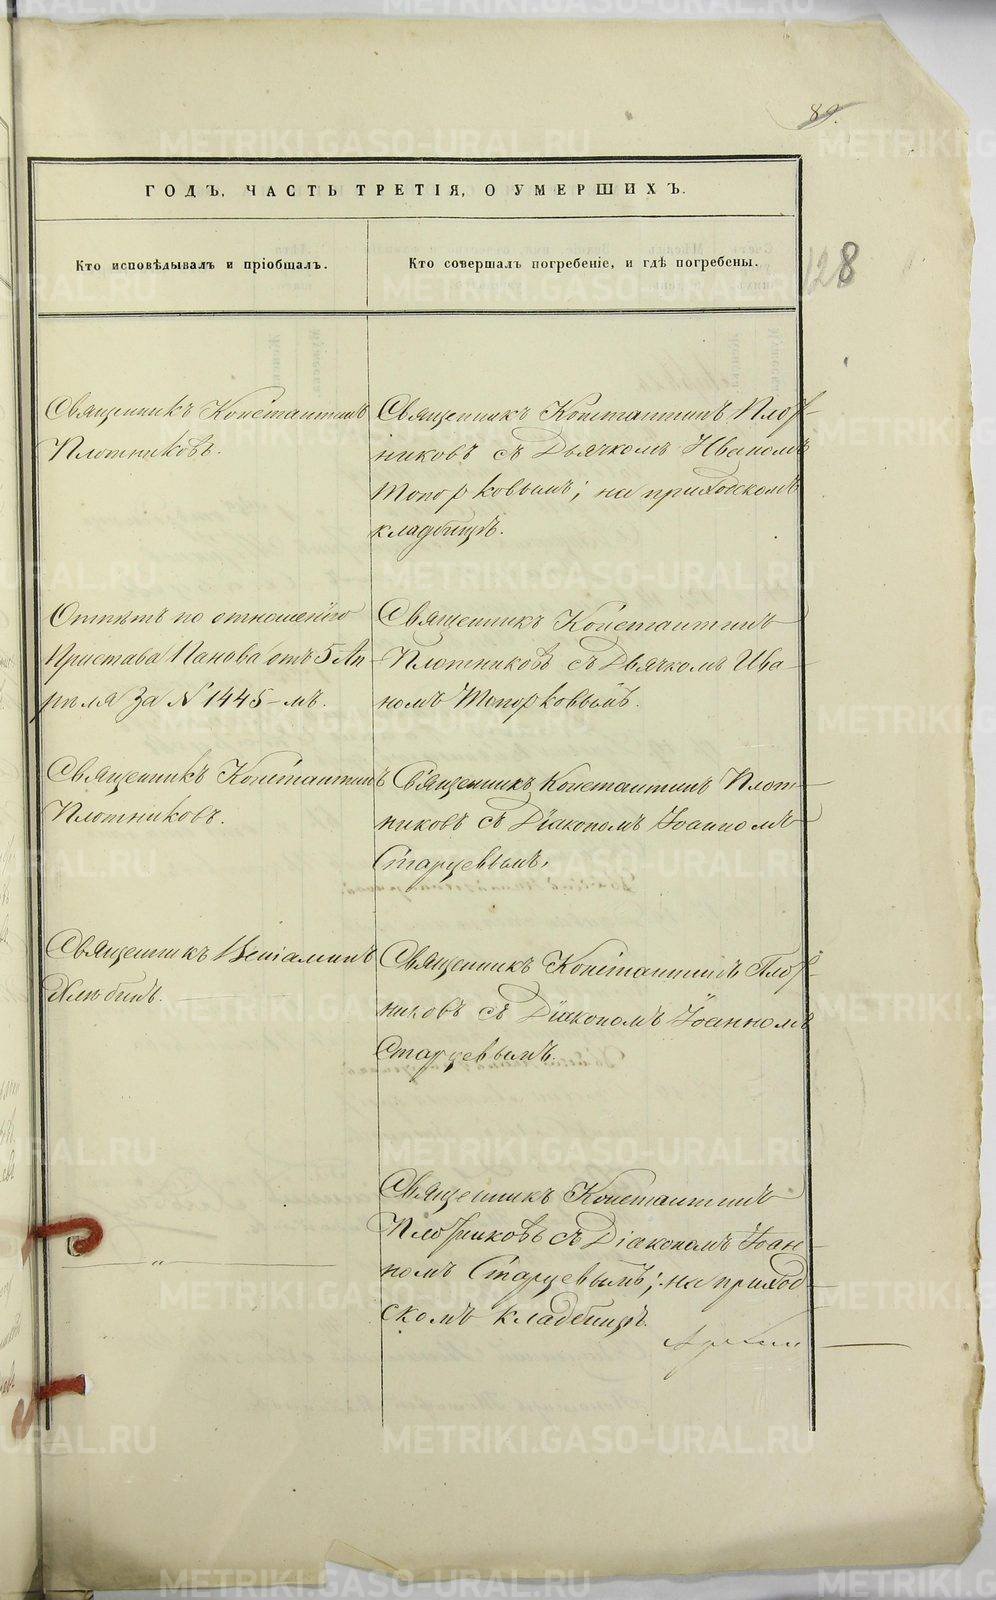 89.
ГОДЪ, ЧАСТЬ ТРЕТІЯ, О УМЕРШИХЪ.
Кто исповѣдывалъ и пріобщалъ.
Кто совершалъ погребеніе, и гдѣ погребены.
128
Священникъ Константинъ
Плотниковъ.
Священникъ Константинъ Плот-
никовъ съ Дьячкомъ Иваномъ
Топорковымъ; на приходскомъ
кладбищѣ.
Отпѣтъ по отношенію
Пристава Панова отъ 5 Ап-
рѣля за № 1445-мъ.
Священникъ Константинъ
Плотниковъ съ Дьячкомъ Ива-
номъ Топорковымъ.
Священникъ Константинъ
Плотниковъ.
Священникъ Константинъ Плот-
никовъ съ Діакономъ Іоанномъ
Старцевымъ.
Священникъ Веніаминъ
Хлѣбинъ.
Священникъ Константинъ Плот-
никовъ съ Діакономъ Іоанномъ
Старцевымъ.
Священникъ Константинъ
Плотниковъ съ Діакономъ Іоан-
номъ Старцевымъ; на приход-
скомъ кладбищѣ.
METRIKI.GASO-URAL.RU